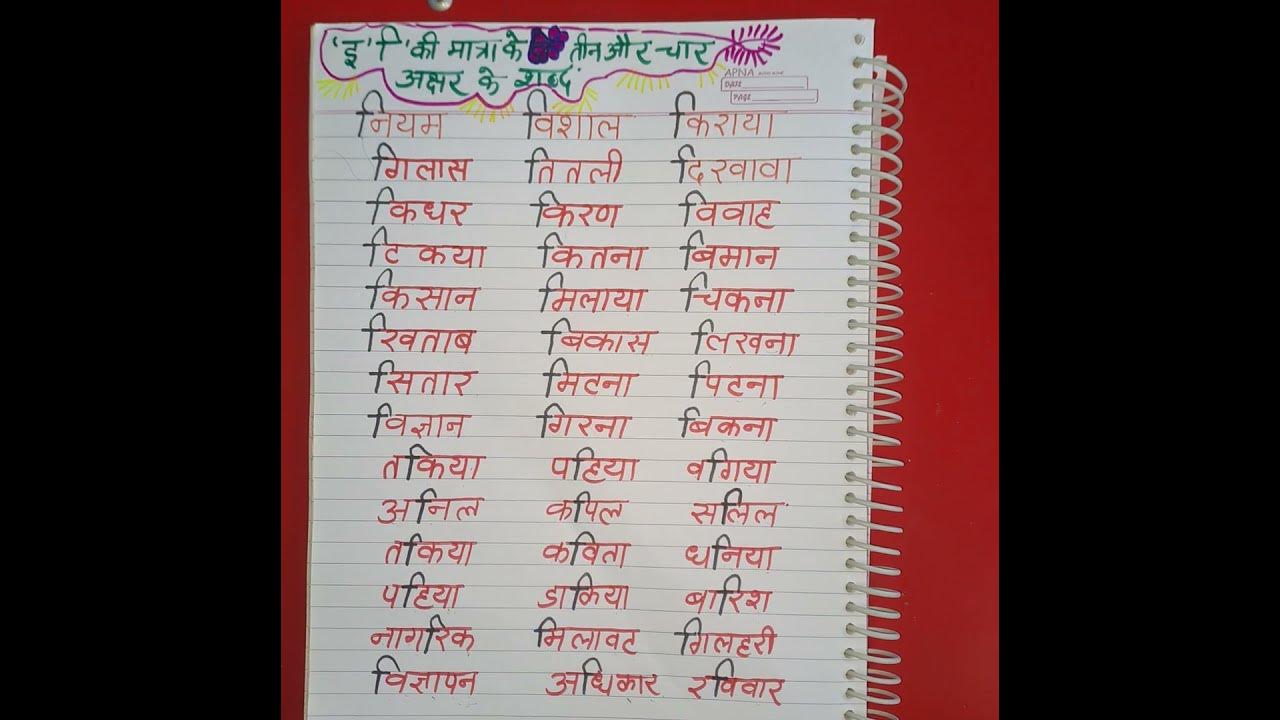 'इ' 'ि' की मात्रा के तीन और चार
अक्षर के शब्द
APNA
DATE
PAGE
नियम विशाल किराया
गिलास तितली दिखावा
किधर किरण विवाह
टिकया कितना बिमान
किसान मिलाया चिकना
खिताब बिकास लिखना
सितार मिटना पिटना
विज्ञान गिरना बिकना
तकिया पहिया वगिया
अनिल कपिल सलिल
तकिया कविता धनिया
पहिया डाकिया बारिश
नागरिक मिलावट गिलहरी
विज्ञापन अधिकार रविवार